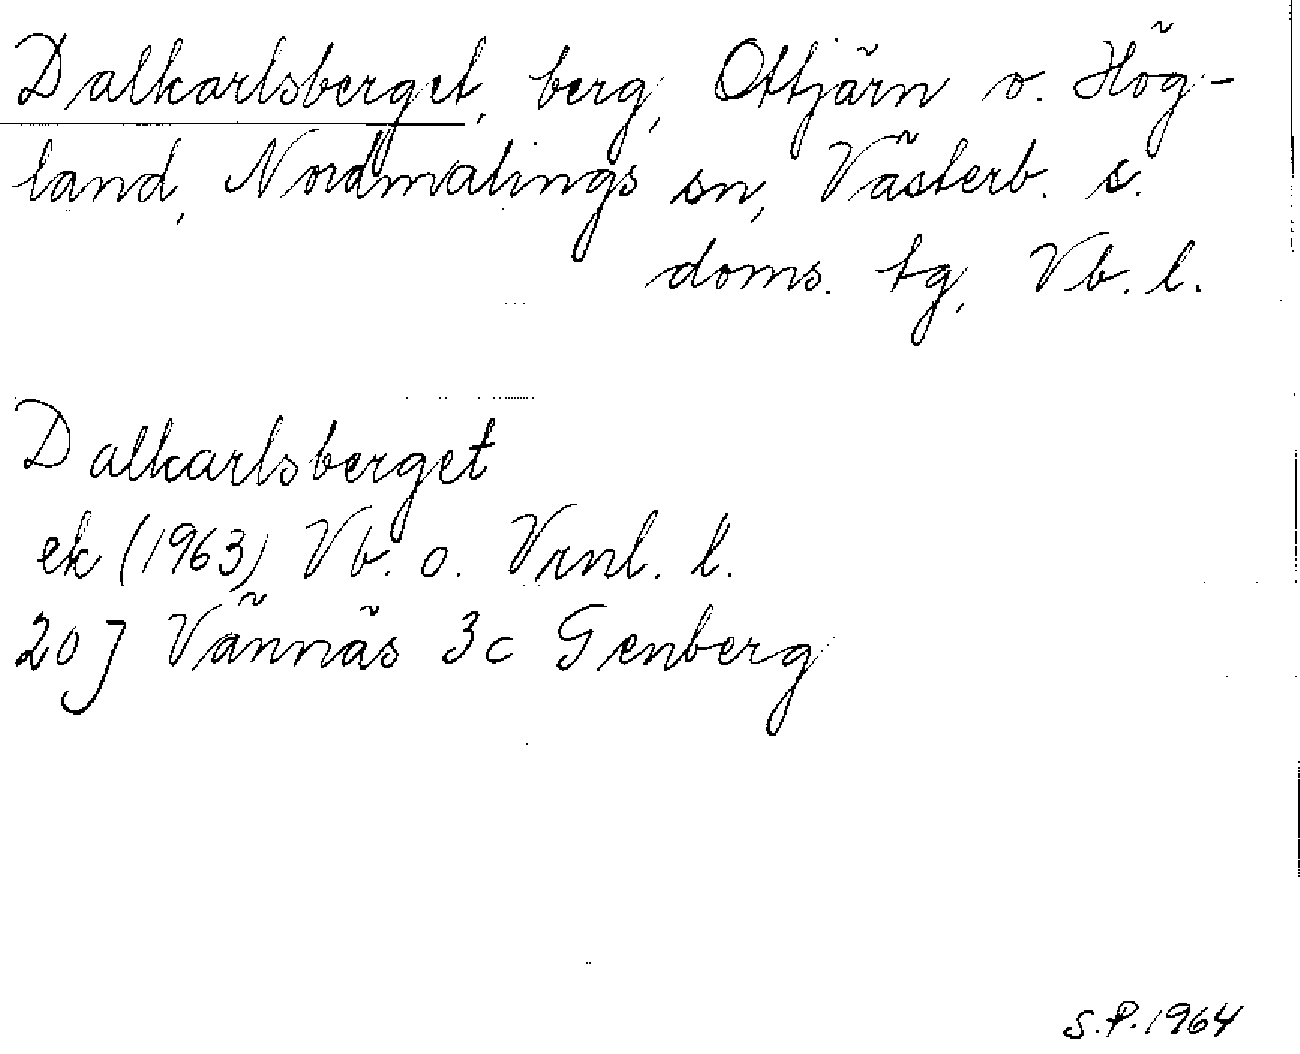 Dalkarlsberget, berg, Ottjärn o. Hög-
land, Nordmalings sn, Västerb. s.
doms. tg, Vb. l.
Dalkarlsberget
ek (1963) Vb. o. Vrnl. l.
20 J Vännäs 3c Genberg
S.P. 1964